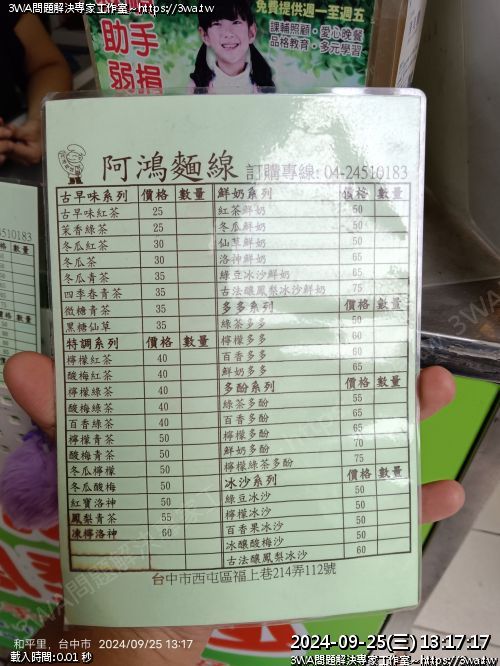 3WA問題解決專家工作室~https://3wa.tw
免費提供週一至週五
課輔照顧・愛心晚餐
品格教育・多元學習
助手
弱捐
阿鴻麵線 訂購專線: 04-24510183
古早味系列 價格 數量
古早味紅茶 25
茉香綠茶 25
冬瓜紅茶 30
冬瓜茶 30
冬瓜青茶 35
四季春青茶 35
微糖青茶 35
黑糖仙草 35
特調系列 價格 數量
檸檬紅茶 40
酸梅紅茶 40
檸檬綠茶 40
酸梅綠茶 40
百香綠茶 40
檸檬青茶 50
酸梅青茶 50
冬瓜檸檬 50
冬瓜酸梅 50
紅寶洛神 50
鳳梨青茶 55
凍檸洛神 60
鮮奶系列 價格 數量
紅茶鮮奶 50
冬瓜鮮奶 50
仙草鮮奶 50
洛神鮮奶 65
綠豆冰沙鮮奶 65
古法釀鳳梨冰沙鮮奶 75
多多系列 價格 數量
綠茶多多 50
檸檬多多
百香多多
鮮奶多多 65
多酚系列 價格 數量
綠茶多酚 55
百香多酚 65
檸檬多酚 65
鮮奶多酚 70
檸檬綠茶多酚 75
冰沙系列 價格 數量
綠豆冰沙 50
檸檬冰沙 50
百香果冰沙 50
冰釀酸梅沙 50
古法釀鳳梨冰沙 60
台中市西屯區福上巷214弄112號
4510183
數量
和平里，台中市 2024/09/25 13:17
載入時間:0.01 秒
2024-09-25(三) 13:17:17
3WA問題解決專家工作室~https://3wa.tw